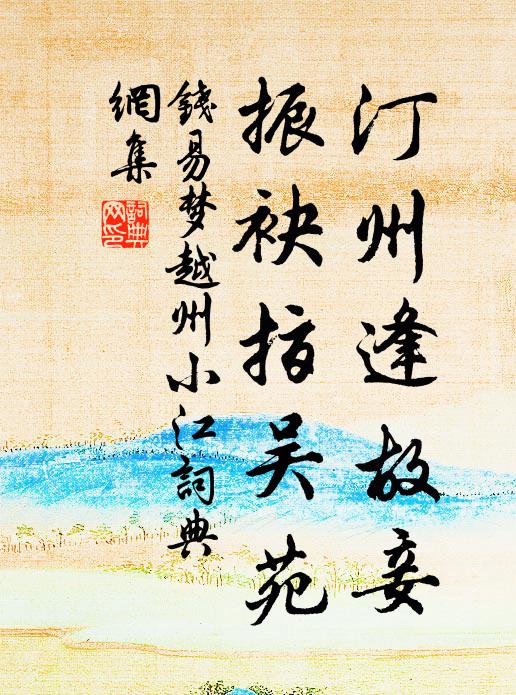 汀州逢故妾
振袂指吴苑
錢易梦越州小江詞典
網集
詞典
网印